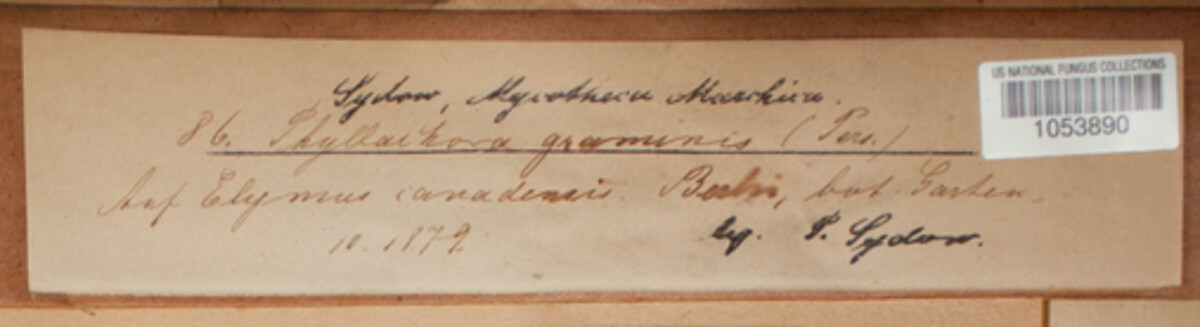 Sydow, Mycotheca Marchica.
86. Phyllachora graminis (Pers.)
Auf Elymus canadensis. Berlin, bot. Garten.
10. 1879.
leg. P. Sydow.
US NATIONAL FUNGUS COLLECTIONS
1053890